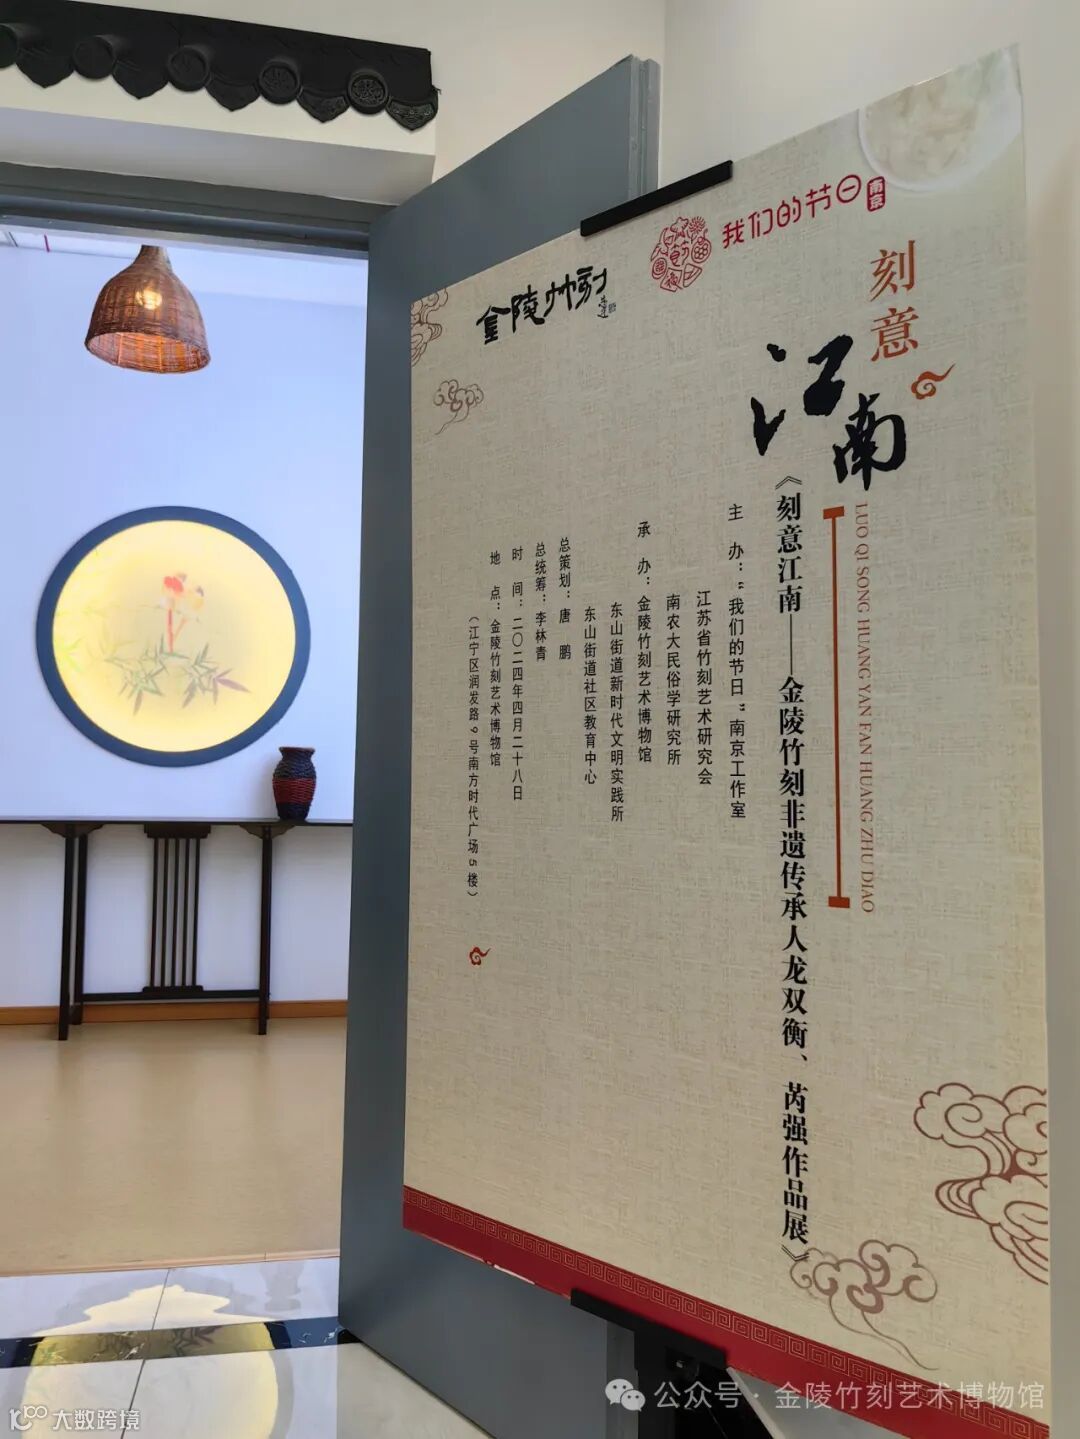 金陵竹刻
我们的节日
南京
刻意
江南
LUO QI SONG HUANG YAN FAN HUANG ZHU DIAO
《刻意江南——金陵竹刻非遗传承人龙双衡、芮强作品展》
主 办：“我们的节日”南京工作室
江苏省竹刻艺术研究会
南农大民俗学研究所
承 办：金陵竹刻艺术博物馆
东山街道新时代文明实践所
东山街道社区教育中心
总策划：唐 鹏
总统筹：李林青
时 间：二〇二四年四月二十八日
地 点：金陵竹刻艺术博物馆
（江宁区润发路9号南方时代广场5楼）
公众号·金陵竹刻艺术博物馆
大数跨境